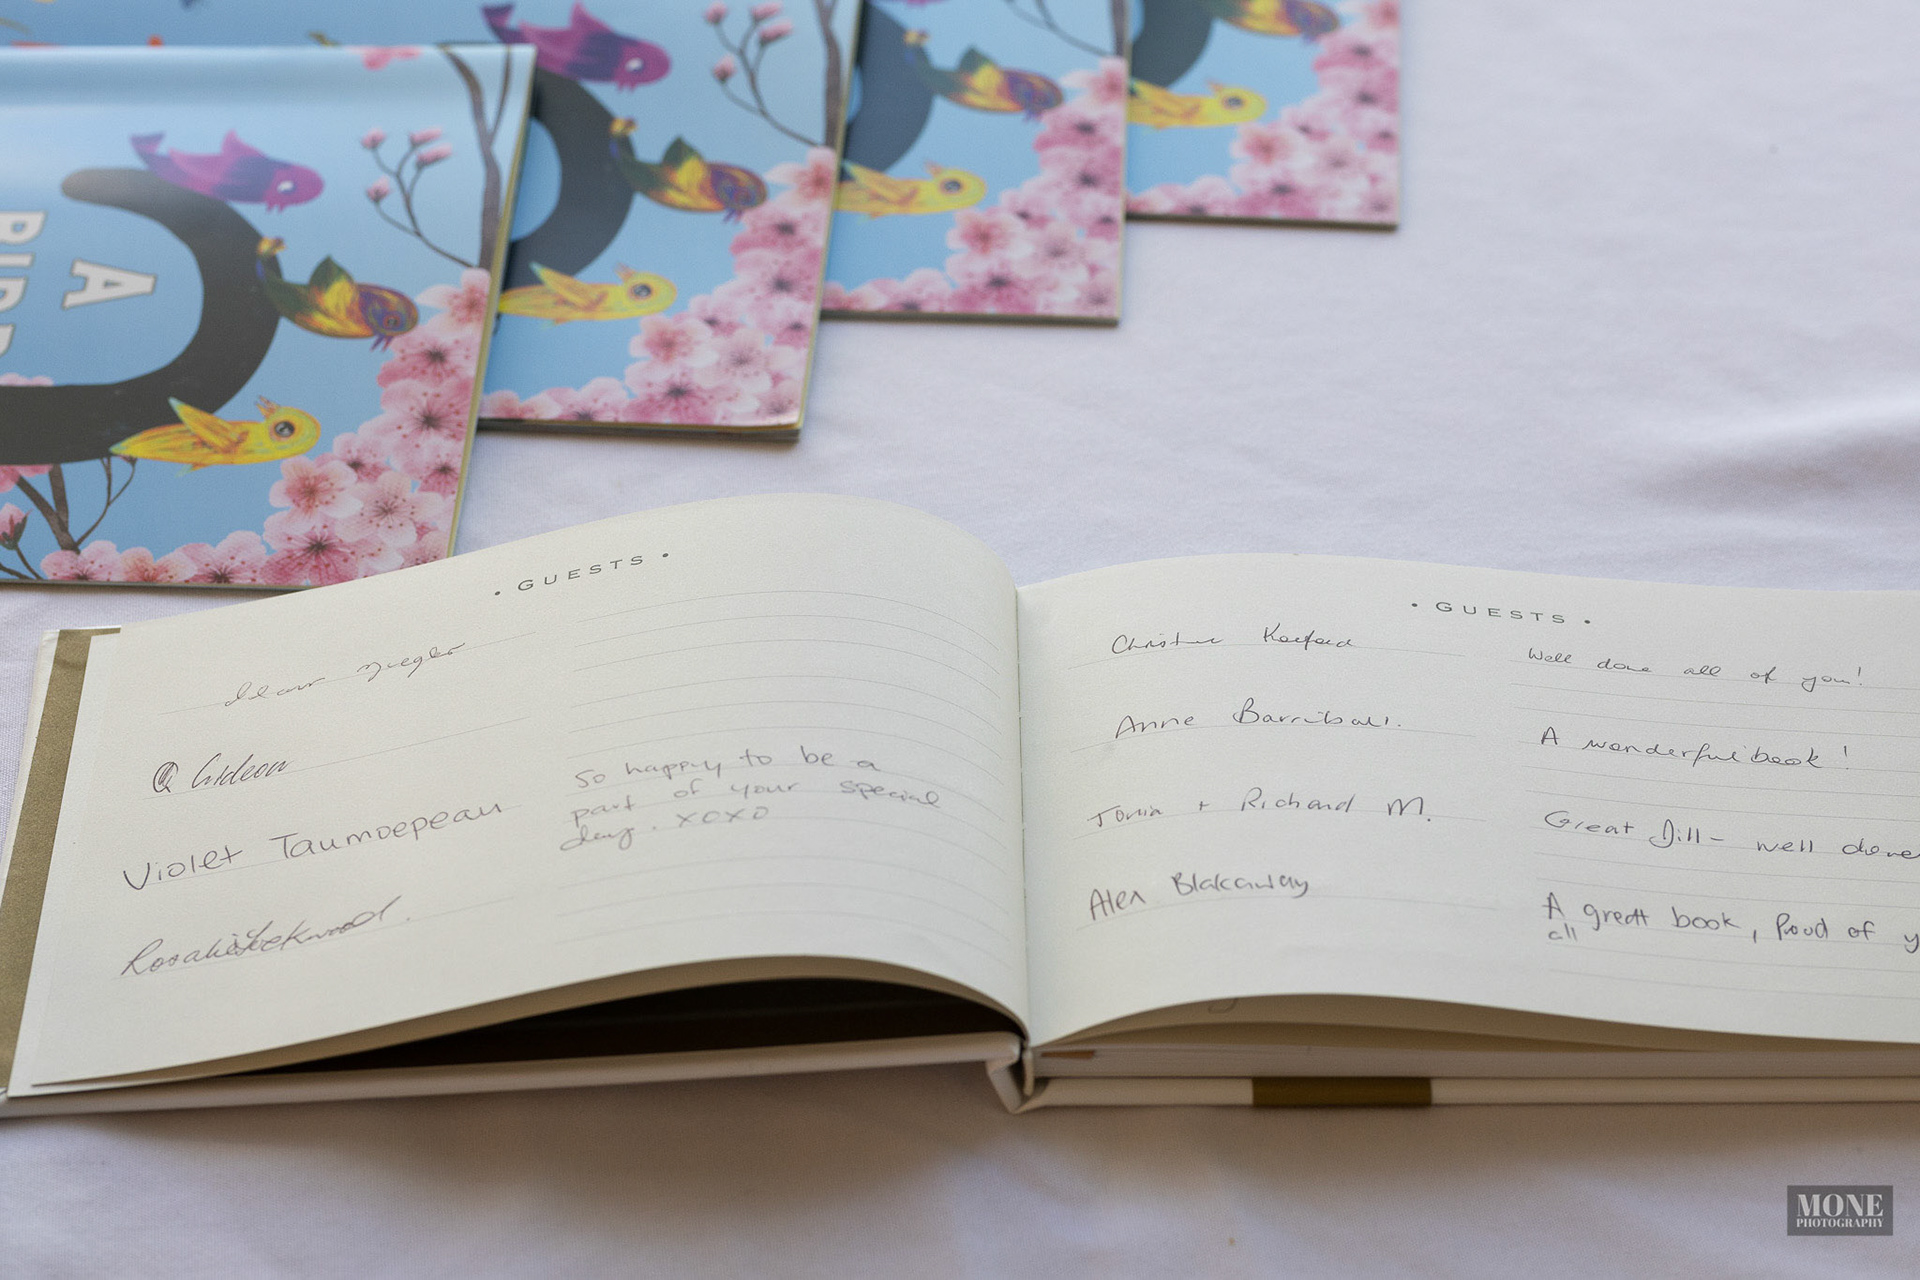 A
BIRD
• GUESTS •
Gideon
Violet Taumoepeau
Rosalie Lockwood.
So happy to be a
part of your special
day. XOXO
• GUESTS •
Anne Barriball.
Tonia + Richard M.
Alex Blakaway
Well done all of you!
A wonderful book!
Great Jill - well done
A great book, Proud of y
all
MONE
PHOTOGRAPHY